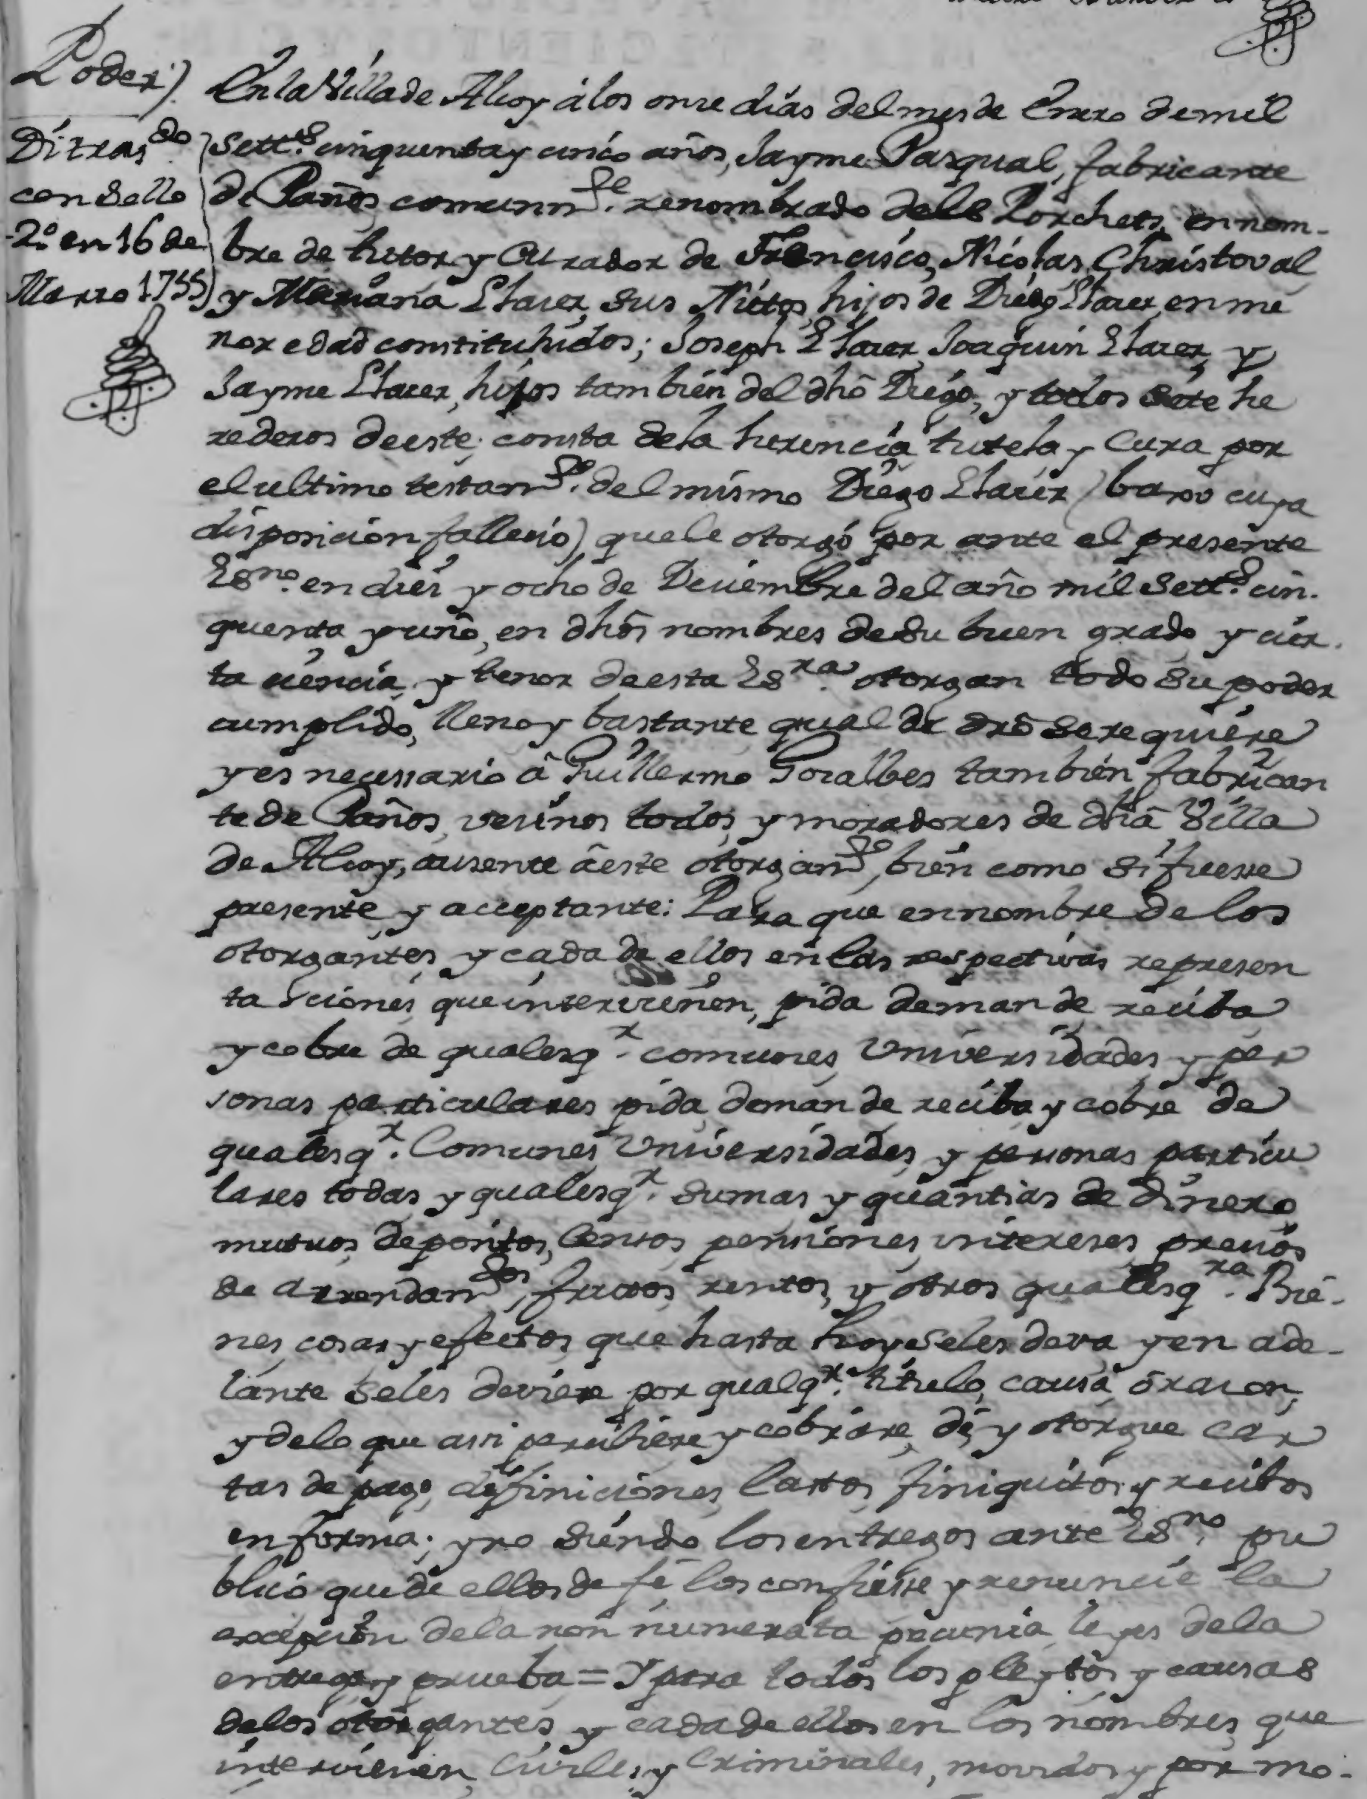 Poder).
Di tras.do
con Sello
2.o en 16 de
Marzo 1755
En la Villa de Alcoy â los onze dias del mes de Enero de mil
Sett.s cinquenta y cinco años, Jayme Pasqual, fabricante
de Paños comunm.te renombrado dels Porchets, en nom-
bre de tutor y Curador de Francisco, Nicolas, Christoval
y Mariana Llacer, sus Nietos, hijos de Diego Llacer, en me
nor edad constituhidos; Joseph Llacer, Joaquin Llacer, y
Jayme Llacer, hijos tambien del dho Diego, y todos siete he
rederos de este: consta de la herencia tutela y Cura por
el ultimo testam.to del mismo Diego Llacer (baxo cuya
disposicion fallecio) que le otorgó por ante el presente
Es.no en dies y ocho de Deziembre del año mil Sett.s cin-
quenta y uno, en dhos nombres de su buen grado, y cier-
ta ciencia, y tenor de esta Es.ra otorgan todo su poder
cumplido, lleno y bastante qual de dro se requiere
y es necessario â Guillermo Gozalbes tambien fabrican
te de Paños, vezinos todos, y moradores de dha Villa
de Alcoy, ausente â este otorgam.to, bien como si fuesse
presente, y acceptante: Para que en nombre de los
otorgantes, y cada de ellos en las respectivas represen
taciones que intervienen, pida demande reciba
y cobre de qualesq.r comunes, Universidades, y per
sonas particulares pida demande reciba y cobre de
qualesq.r Comunes, Universidades, y personas particu
lares todas y qualesq.r sumas y quantias de dinero
mutuos, depositos, Censos, pensiones, intereses, precios
de arrendam.tos, frutos, rentos, y otros qualesq.ra Bie-
nes, cosas y efectos, que hasta hoy se les deva y en ade-
lante se les deviere por qualq.r titulo, causa ô razon,
y de lo que assi percibiere y cobrare, dé, y otorgue car
tas de pago, difiniciones, lastos, finiquitos, y recibos
en forma; y no siendo los entregos ante Es.no pu
blico que de ellos de fé los confiesse y renuncie la
excepcion de la non numerata pecunia, leyes de la
entrega y prueba = Y para todos los pleytos y causas
de los otorgantes, y cada de ellos en los nombres que
intervienen, Civiles, y Criminales, movidos y por mo-